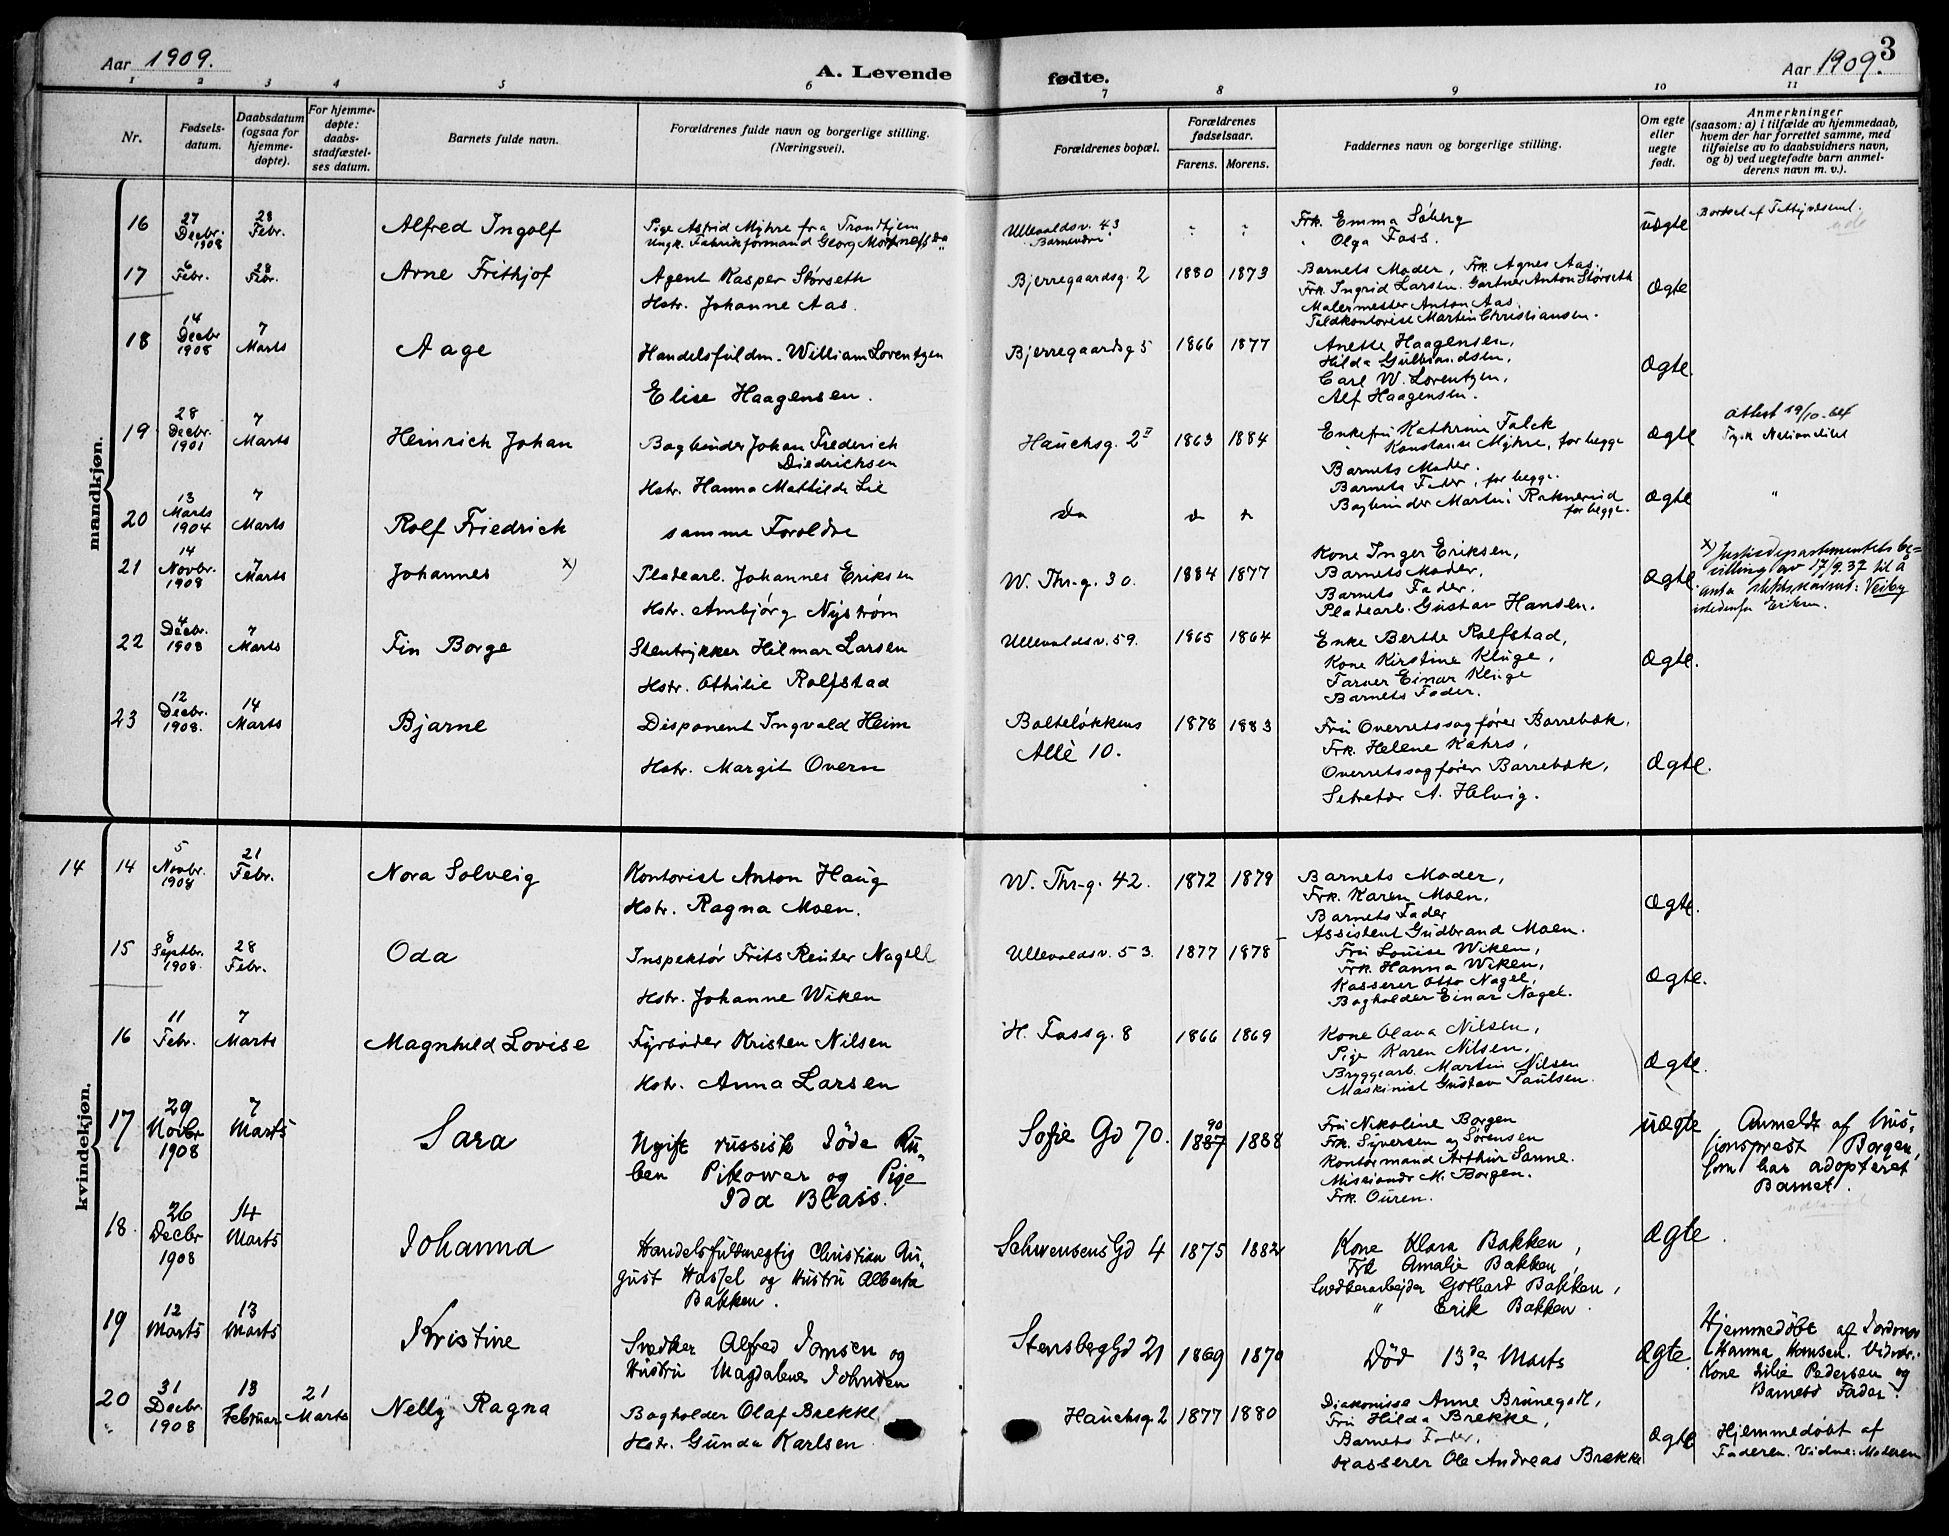 Aar 1909.
A. Levende fødte.
Aar 1909. 3
1 2 3 4 5 6 7 8 9 10 11
Nr.
Fødsels-
datum.
Daabsdatum
(ogsaa for
hjemme-
døpte).
For hjemme-
døpte:
daabs-
stadfæstel-
ses datum.
Barnets fulde navn.
Forældrenes fulde navn og borgerlige stilling.
(Næringsvei).
Forældrenes bopæl.
Forældrenes
fødselsaar.
Farens. Morens.
Faddernes navn og borgerlige stilling.
Om egte
eller
uegte
født.
Anmerkninger
(saasom: a) i tilfælde av hjemmedaab,
hvem der har forrettet samme, med
tilføielse av to daabsvidners navn,
og b) ved uegtefødte barn anmel-
derens navn m. v.).
mandkjøn.
16 27 Decbr. 1908 28 Febr. Alfred Ingolf
Pige Astrid Myhre fra Trondhjem
Ungk. Fabrikformand Georg
Ullevoldsv. 43
" "
Frk. Emma Søberg
" Olga Foss.
uægte
17 6 Febr. 28 Febr. Arne Frithjof
Agent Kasper Størseth
Hstr. Johanne Aas.
Bjerregaardsg. 2 1880 1873
Barnets Moder, Frk. Agnes Aas.
Frk. Ingrid Larsen. Gartner Anton Størseth
Malermester Anton Aas.
Martin Christiansen.
Ægte
18 14 Decbr 1908 7 Marts Aage
Handelsfuldm. William Lorentzen
Elise Haagensen.
Bjerregaardsg 5 1866 1877
Anette Haagensen,
Hilda Gulbrandsen,
Carl W. Lorentzen,
Alf Haagensen.
Ægte.
19 28 Decbr. 1901 7 Marts Heinrich Johan
Bogbinder Johan Frederich
Diedrichsen
Hstr. Hanna Mathilde Lie
Hauchsg. 2 II 1863 1884
Enkefru Kathrine Falck
" Konstanse Myhre, for begge
Barnets Moder.
Barnets Fader, for begge.
Ægte
attest 19/10
Tysk Nationalitet
20 13 Marts 1904 7 Marts Rolf Friedrick
samme Foroldre
do
Bogbinder Martin Raknerud
for begge.
Ægte
"
21 14 Novbr. 1908 7 Marts Johannes x)
Pladearb. Johannes Eriksen
Hstr. Ambjørg Nystrøm
W. Thr-g. 30. 1884 1877
Kone Inger Eriksen,
Barnets Moder,
Barnets Fader,
Pladearb. Gustav Hansen.
Ægte.
x) Justisdepartementets be-
villing av 17/9.37 til å
anta slektsnavnet: Veiby
istedenfor Eriksen.
22 4 Decbr. 1908 7 Marts Fin Borge
Stentrykker Hilmar Larsen
Hstr. Othilie Rolfstad
Ullevoldsv. 59. 1865 1864
Enke Berthe Rolfstad,
Kone Kirstine Kluge,
Farver Einar Kluge
Barnets Fader.
Ægte.
23 12 Decbr. 1908. 14 Marts Bjarne
Disponent Ingvald Heim
Hstr. Margit Overn
Bolteløkkens
Allé 10.
1878 1883
Fru Overretssagfører Borrebæk,
Frk. Helene Kahrs,
Overretssagfører Borrebæk,
Sekretær A. Helvig.
Ægte.
kvindekjøn.
14 14 5 Novbr. 1908 21 Febr. Nora Solveig
Kontorist Anton Haug
Hstr. Ragna Moen.
W. Thr-g. 42. 1872 1879
Barnets Moder,
Frk. Karen Moen,
Barnets Fader
Assistent Gudbrand Moen.
Ægte.
15 8 Septbr. 1908. 28 Febr. Oda
Inspektør Frits Reuter Nagell
Hstr. Johanne Wiken
Ullevoldsv. 53. 1877 1878
Fru Louise Wiken,
Frk. Hanna Wiken,
Kasserer Otto Nagel,
Bogholder Einar Nagel.
Ægte.
16 11 Febr. 7 Marts Magnhild Lovise
Fyrbøder Kristen Nilsen
Hstr. Anna Larsen
H. Fossg. 8 1866 1869
Kone Olava Nilsen,
Pige Karen Nilsen,
Bryggearb. Martin Nilsen
Maskinist Gustav Paulsen.
Ægte.
17 29 Novbr 1908 7 Marts Sara
Ugift russisk Jøde Ru-
ben Pikower og Pige
Ida Blass.
Sofie Gd 70. 1887 90 1888
Fru Nikoline Borgen
Frk. Syversen og Sørensen
Kontormand Arthur Sanne.
Missionær M. Borgen.
Frk. Ouren.
uægte
Anmeldt af Mis-
sionsprest Borgen,
som har adopteret
Barnet.
18. 26 Decbr 1908 14 Marts Johanna
Handelsfuldmegtig Christian Au-
gust Hassel og Hustru Alberta
Bakken.
Schwensens Gd 4 1875 1882
Kone Klara Bakken,
Frk Amalie Bakken,
Snedkerarbejder Gothard Bakken,
" Erik Bakken.
Ægte.
19 12 Marts 13 Marts Kristine
Snedker Alfred Jonsen og
Hustru Magdalene Johnsen
Stensberg Gd 21 1869 1870
Død 13de Marts
Ægte.
Hjemmedøbt af Jordmor
Hanna Hansen. Vidner:
Kone Julie Pedersen og
Barnets Fader.
20 31 Decbr. 1908 13 Februar 21 Marts Nelly Ragna
Bogholder Olaf Brekke
Hstr. Gunda Karlsen.
Hauchsg. 2 1877 1880
Diakonisse Anne
Fru Hilda Brekke,
Barnets Fader,
Kasserer Ole Andreas Brekke
Ægte
Hjemmedøbt af
Faderen. Vidne: Moderen